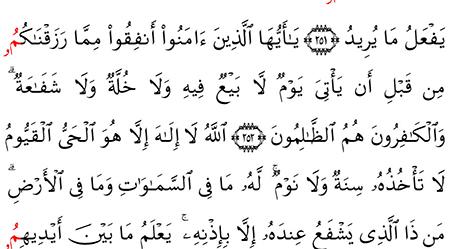 يَفْعَلُ مَا يُرِيدُ ۝٢٥١ يَـٰٓأَيُّهَا ٱلَّذِينَ ءَامَنُوٓا۟ أَنفِقُوا۟ مِمَّا رَزَقْنَـٰكُمُۥ
مِن قَبْلِ أَن يَأْتِىَ يَوْمٌ لَّا بَيْعٌ فِيهِ وَلَا خُلَّةٌ وَلَا شَفَـٰعَةٌ ۗ
وَٱلْكَـٰفِرُونَ هُمُ ٱلظَّـٰلِمُونَ ۝٢٥٢ ٱللَّهُ لَآ إِلَـٰهَ إِلَّا هُوَ ٱلْحَىُّ ٱلْقَيُّومُ
لَا تَأْخُذُهُۥ سِنَةٌ وَلَا نَوْمٌ ۚ لَّهُۥ مَا فِى ٱلسَّمَـٰوَٰتِ وَمَا فِى ٱلْأَرْضِ ۗ
مَن ذَا ٱلَّذِى يَشْفَعُ عِندَهُۥٓ إِلَّا بِإِذْنِهِۦ ۚ يَعْلَمُ مَا بَيْنَ أَيْدِيهِمُۥ